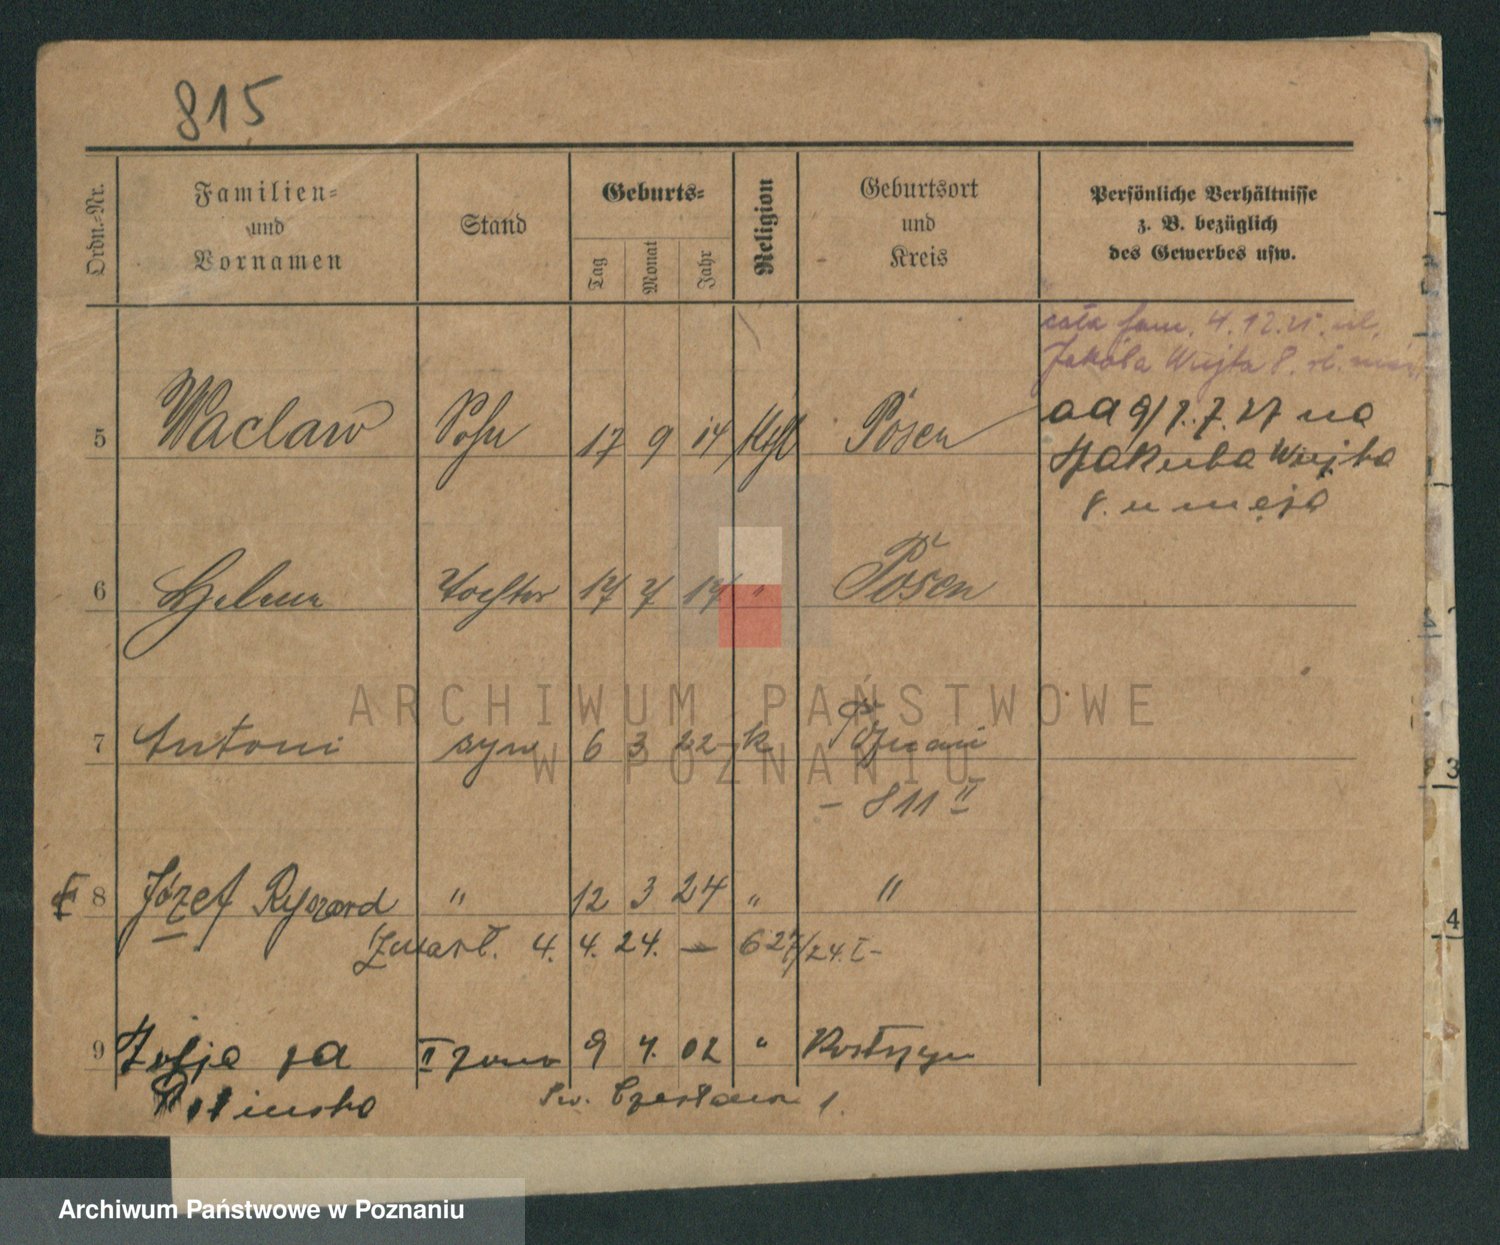 815
Ordn.-Nr.
Familien-
und
Vornamen
Stand
Geburts-
Tag
Monat
Jahr
Religion
Geburtsort
und
Kreis
Persönliche Verhältnisse
z. B. bezüglich
des Gewerbes usw.
cała fam. 4.12.25. ul.
Jakóba Wujka 8.
5 Waclaw Sohn 17 9 14 Kthl Posen
od 9/7.7.27 na
Jakuba Wujka
8. u męża
6 Helene Tochter 17 7 17 " Posen
7 Antoni syn 6 3 22 k Poznań
- 811 II
8 Józef Ryszard " 12 3 24 " "
Zmarł. 4. 4. 24. — 627/24. I -
9 Zofja II żona 9 4. 02 " Kostrzyn
Św. Czesława 1.
3
4
ARCHIWUM PAŃSTWOWE
W POZNANIU
Archiwum Państwowe w Poznaniu